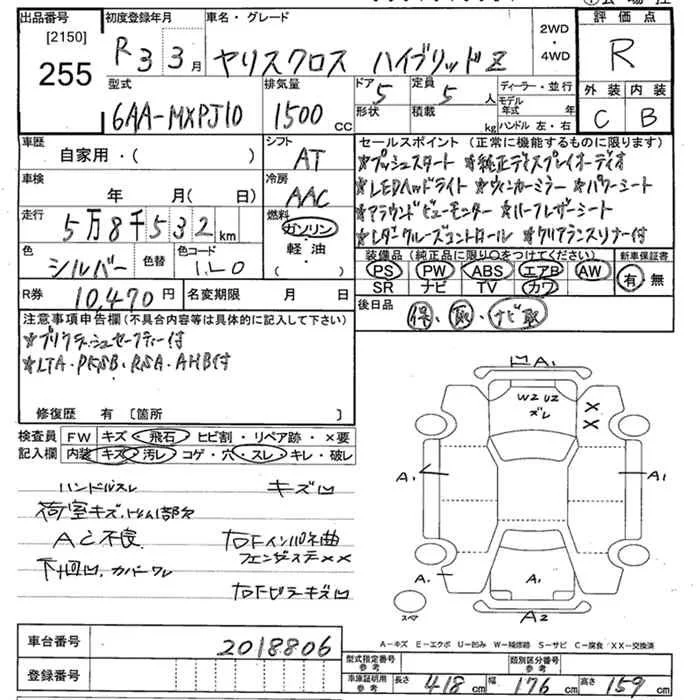 出品番号 初度登録年月 車名・グレード 2WD・4WD 評価点
[2150]
255
R3 3月 ヤリスクロス ハイブリッドZ R
型式 排気量 ドア 5 定員 5人 ディーラー・並行 外装 内装
6AA-MXPJ10 1500cc 形状 積載 kg モデル年式 年 ハンドル 左・右 C B
車歴 自家用・( ) シフト AT
セールスポイント (正常に機能するものに限ります)
★プッシュスタート ★純正ディスプレイオーディオ
★LEDヘッドライト ★ウィンカーミラー ★パワーシート
★アラウンドビューモニター ★ハーフレザーシート
★レダークルーズコントロール ★クリアランスソナー付
車検 年 月( 日) 冷房 AAC
走行 5万8千532km 燃料 ガソリン 軽油 ( ・ )
色 シルバー 色替 色コード 1L0
装備品 (純正品に限り○をつけてください) 新車保証書
PS PW ABS エアB AW 有・無
SR ナビ TV カワ
R券 10,470円 名変期限 月 日
後日品 保、取、ナビ取
注意事項申告欄 (不具合内容等は具体的に記入して下さい)
★プリクラッシュセーフティー付
★LTA・PKSB・RSA・AHB付
修復歴 有 [箇所 ]
検査員記入欄 FW キズ・飛石 ヒビ割・リペア跡・×要
内装 キズ・汚レ コゲ・穴・スレ キレ・破レ
ハンドルスレ キズ凹
荷室キズ、トリム部欠
AC不良 右Fインパネ曲
フェンダーステ××
下廻凹、カバーワレ
右Fピラーキズ凹
A1
W2 U2
ズレ
X
X
A1 A1
A1
A1
A2
スペア
A-キズ E-エクボ U-凹み W-補修跡 S-サビ C-腐食 XX-交換済
車台番号 2018806
登録番号
型式指定番号 参考 類別区分番号 参考
車庫証明用 参考 長さ 418cm 幅 176cm 高さ 159cm